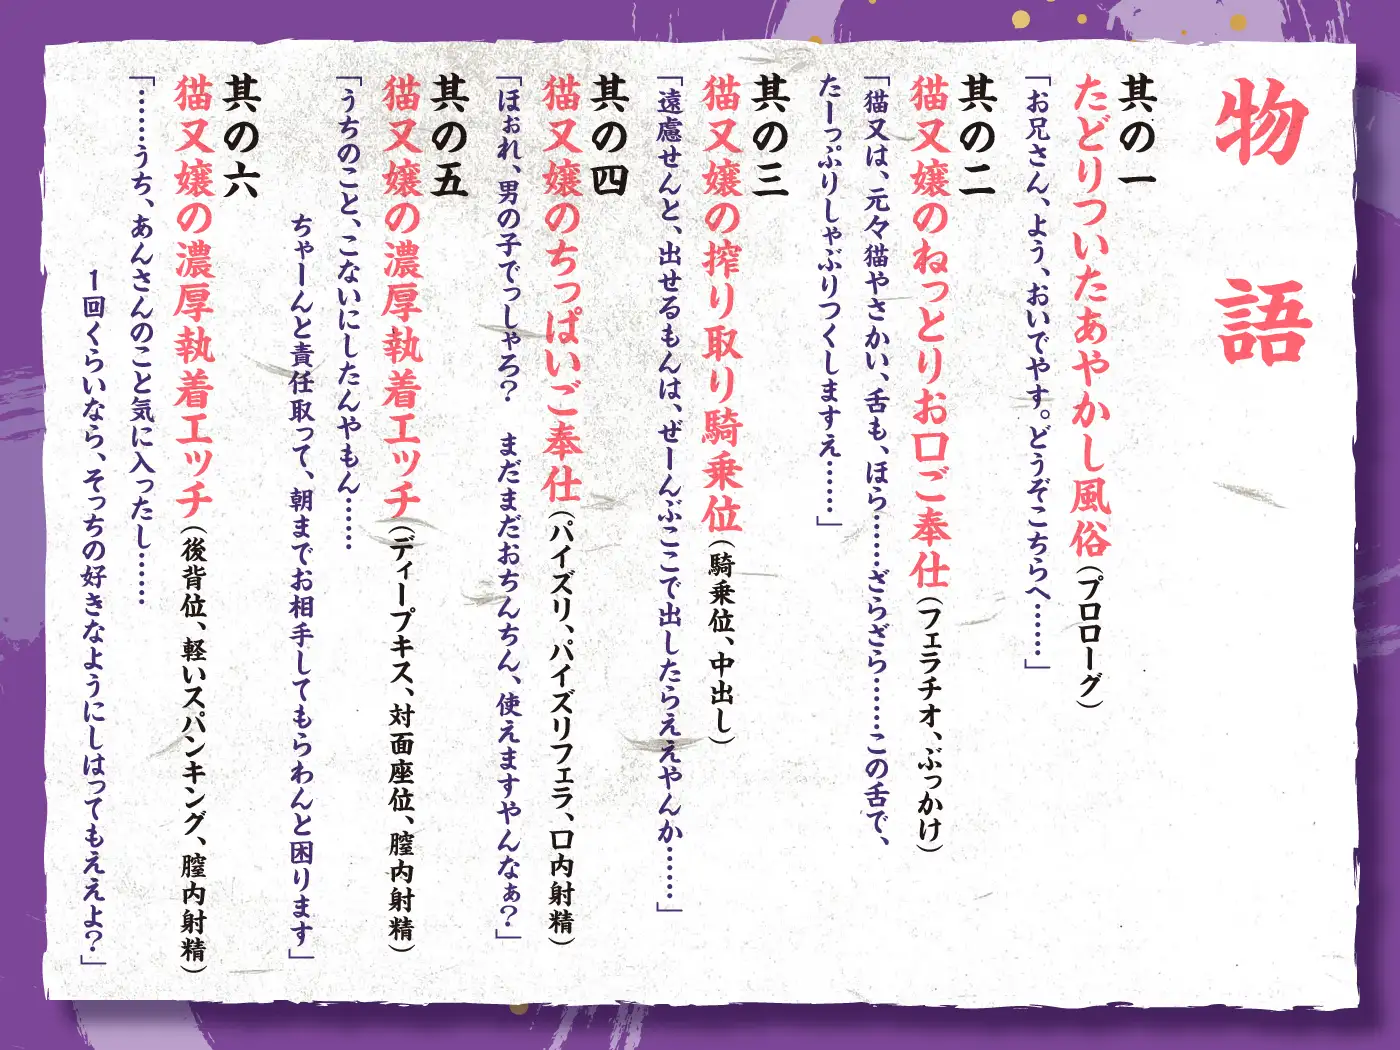 物語
其の一
たどりついたあやかし風俗(プロローグ)
「お兄さん、よう、おいでやす。どうぞこちらへ……」
其の二
猫又嬢のねっとりお口ご奉仕(フェラチオ、ぶっかけ)
「猫又は、元々猫やさかい、舌も、ほら……ざらざら……この舌で、
たーっぷりしゃぶりつくしますえ……」
其の三
猫又嬢の搾り取り騎乗位(騎乗位、中出し)
「遠慮せんと、出せるもんは、ぜーんぶここで出したらええやんか……」
其の四
猫又嬢のちっぱいご奉仕(パイズリ、パイズリフェラ、口内射精)
「ほぉれ、男の子でっしゃろ? まだまだおちんちん、使えますやんなぁ?」
其の五
猫又嬢の濃厚執着エッチ(ディープキス、対面座位、膣内射精)
「うちのこと、こないにしたんやもん……
ちゃーんと責任取って、朝までお相手してもらわんと困ります」
其の六
猫又嬢の濃厚執着エッチ(後背位、軽いスパンキング、膣内射精)
「……うち、あんさんのこと気に入ったし……
1回くらいなら、そっちの好きなようにしはってもええよ?」